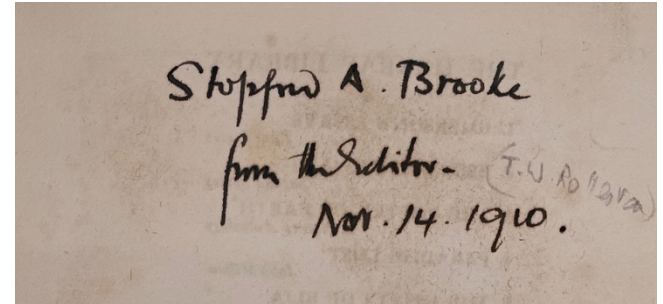 Stopford A. Brooke
from the Editor - (T. W. Rolleston)
Nov. 14. 1910.